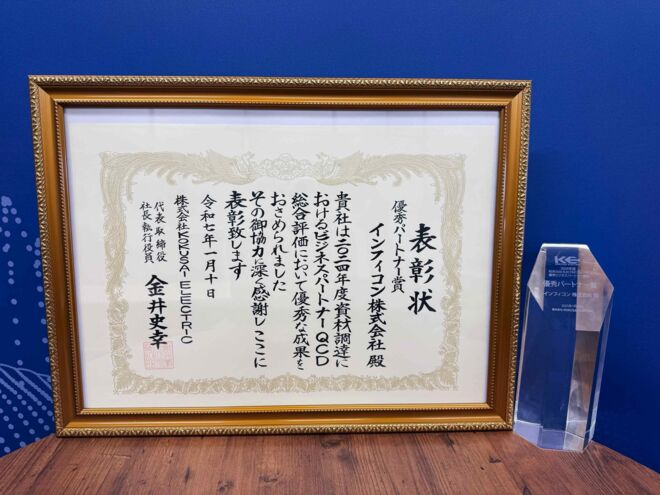 表彰状
優秀パートナー賞
インフィコン株式会社 殿
貴社は二〇二四年度資材調達に
おけるビジネスパートナーQCD
総合評価において優秀な成果を
おさめられました
その御協力に深く感謝しここに
表彰致します
令和七年一月十日
株式会社KOKUSAI ELECTRIC
代表取締役
社長執行役員
金井史幸
KE
優秀パートナー賞
インフィコン 株式会社 殿